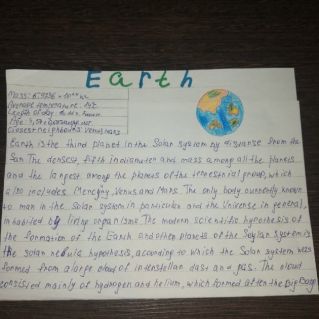 Earth
Mass: 5,9736 × 10²⁴ kg
Average temperature: 14°C
Length of day:
Age: 4,54
Closest neighbours: Venus, Mars
Earth is the third planet in the Solar system by distanse from the
sun. The densest, fifth in diameter and mass among all the planets
and the largest among the planets of the terrestrial group, which
also includes Mercury, Venus and Mars. The only body currently known
to man in the Solar system in particular and the Universe in general,
inhabited by living organisms. The modern scientific hypothesis of
the formation of the Earth and other planets of the Soylar system is
the solar nebula hypothesis, according to which the Solar system was
formed from a large cloud of interstellar dast and gas. The cloud
consisted mainly of hydrogen and helium, which formed after the Big Bang